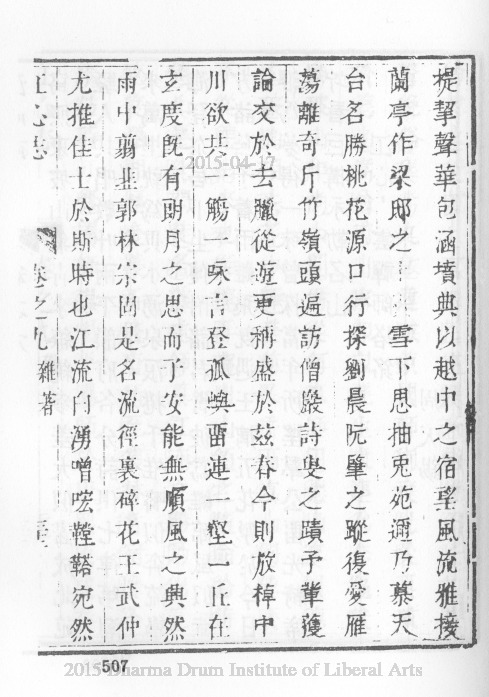 提挈聲華包涵墳典以越中之宿望風流雅接
蘭亭作梁邸之 雪下思抽兎苑邇乃慕天
台名勝桃花源口行探劉晨阮肇之蹤復愛雁
蕩離奇斤竹嶺頭遍訪僧巖詩叟之蹟予輩獲
論交於去臘從遊更稱盛於茲春今則放棹中
川欲共一觴一咏言登孤嶼畱連一壑一丘在
玄度旣有朗月之思而子安能無順風之興然
雨中翦韭郭林宗尚是名流徑裏碎花王武仲
尤推佳士於斯時也江流白湧噌吰鞺鞳宛然
江心志 卷之九 雜著 三
2015-04-17
507
2015 Dharma Drum Institute of Liberal Arts